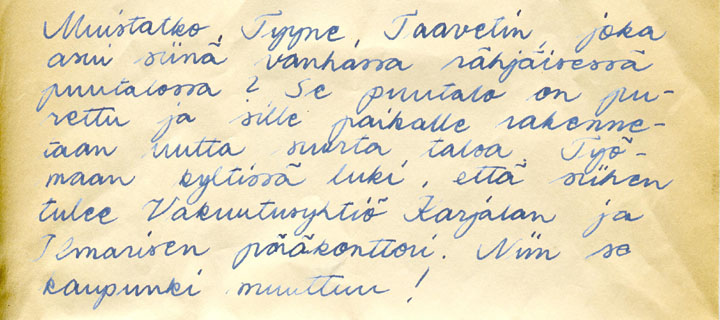 Muistatko, Tyyne, Taavetin, joka
asui siinä vanhassa rähjäisessä
puutalossa? Se puutalo on pu-
rettu ja sille paikalle rakenne-
taan uutta suurta taloa. Työ-
maan kyltissä luki, että siihen
tulee Vakuutusyhtiö Karjalan ja
Ilmarisen pääkonttori. Niin se
kaupunki muuttuu!